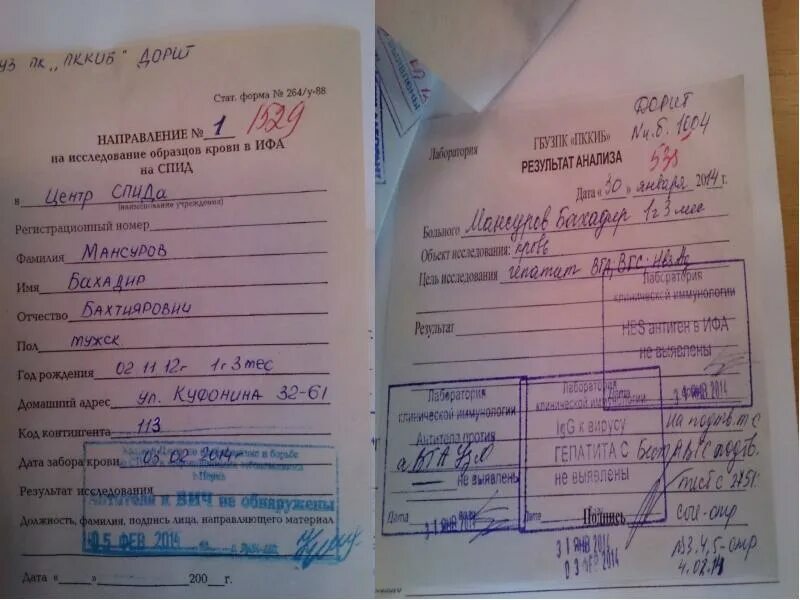 УЗ ПК „ПККИБ" ДОРИТ
Стат. форма № 264/у-88
НАПРАВЛЕНИЕ № 1 1529
на исследование образцов крови в ИФА
на СПИД
в Центр СПИДа
(наименование учреждения)
Регистрационный номер
Фамилия Мансуров
Имя Бахадир
Отчество Бахтиярович
Пол мужск
Год рождения 02 11 12г 1г 3 мес
Домашний адрес ул. Куфонина 32-61
Код контингента 113
Дата забора крови 03 02 2014
Результат исследования
Антитела к ВИЧ не обнаружены
Должность, фамилия, подпись лица, направляющего материал
05 ФЕВ 2014
Дата «___» 200 г.
ДОРИТ
N и.б. 1004
Лаборатория
ГБУЗПК «ПККИБ»
РЕЗУЛЬТАТ АНАЛИЗА
538
Дата «30» января 2014 г.
Больного Мансуров Бахадир 1г 3 мес
Объект исследования: кровь
Цель исследования гепатит ВГА, ВГС, HBsAg
Результат
Лаборатория
клинической иммунологии
HBS антиген в ИФА
не выявлены
31 ЯНВ 2014
Лаборатория
клинической иммунологии
Антитела против
не выявлены
Дата
31 ЯНВ 2014
Лаборатория
клинической иммунологии
IgG к вирусу
ГЕПАТИТА С
не выявлены
Дата Подпись
31 ЯНВ 2014
03 ФЕВ 2014
на подтв. т-с
тест с
4.02.14